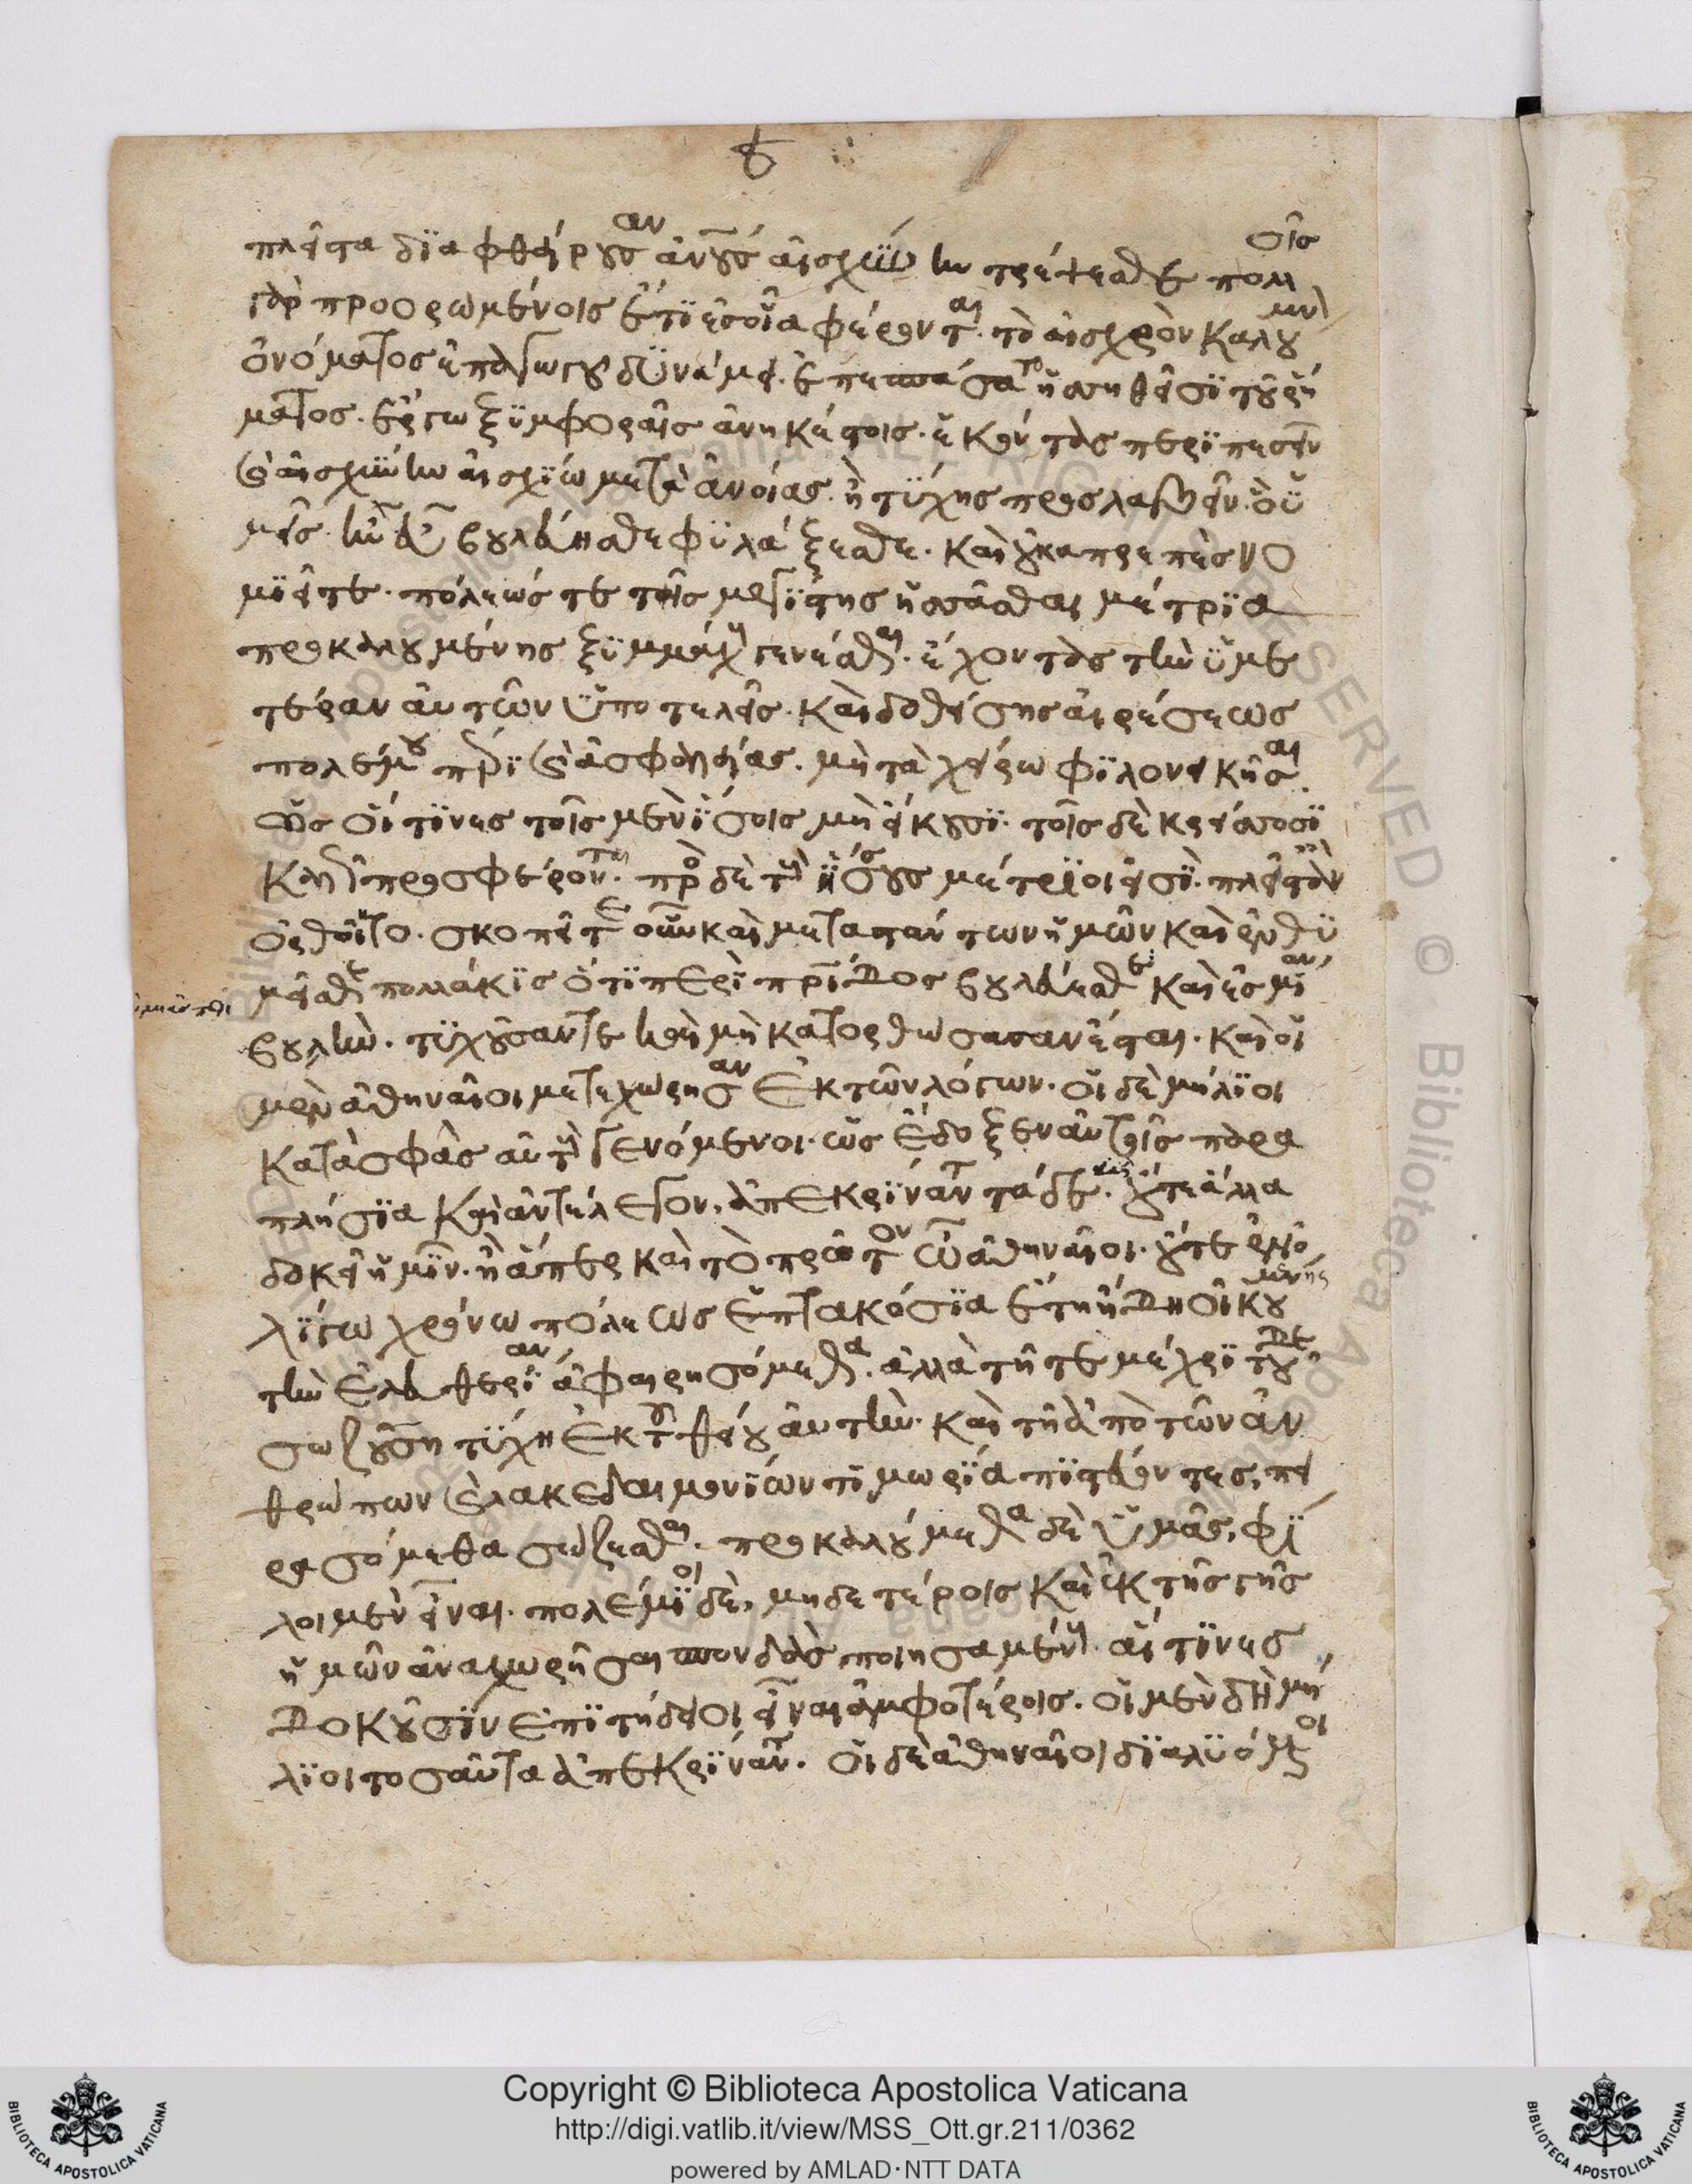 πλεῖστα διαφθείρουσαν ἀνους αἰσχύνην τρέψεσθε πολλοῖς
γὰρ προορωμένοις ἔτι ἐς οἷα φέρονται. τὸ αἰσχρὸν καλούμενον
ὀνόματος ἐπαγωγοῦ δυνάμει. ἐπεσπάσατο ἡσσηθεῖσι τοῦ ῥή
ματος. ἔργω ξυμφοραῖς ἀνηκέστοις. ἑκόντας περιπεσεῖν
καὶ αἰσχύνην αἰσχίω μετὰ ἀνοίας. ἢ τύχης προσλαβεῖν. ὃ ὑ
μεῖς. ἢν εὖ βουλεύησθε φυλάξεσθε. καὶ οὐκ ἀπρεπὲς νο
μιεῖτε. πόλεώς τε τῆς μεγίστης ἡσσᾶσθαι μέτρια
προκαλουμένης ξυμμάχους γενέσθαι. ἔχοντας τὴν ὑμε
τέραν αὐτῶν ὑποτελεῖς. καὶ δοθείσης αἱρέσεως
πολέμου πέρι καὶ ἀσφαλείας. μὴ τὰ χείρω φιλονεικῆσαι.
ὡς οἵτινες τοῖς μὲν ἴσοις μὴ εἴκουσι. τοῖς δὲ κρείσσοσι
καλῶς προσφέρονται. πρὸς δὲ τοὺς ἥσσους μέτριοι εἰσι. πλεῖστ' ἂν
ὀρθοῖντο. σκοπεῖτε οὖν καὶ μεταστάντων ἡμῶν καὶ ἐνθυ
μεῖσθε πολλάκις ὅτι περὶ πατρίδος βουλεύεσθε καὶ ἐς μίαν
βουλὴν. τυχοῦσαν τε καὶ μὴ κατορθώσασαν ἔσται. καὶ οἱ
μὲν ἀθηναῖοι μετεχώρησαν ἐκ τῶν λόγων. οἱ δὲ μήλιοι
κατὰ σφᾶς αὐτοὺς γενόμενοι. ὡς ἔδοξεν αὐτοῖς παρα
πλήσια καὶ ἀντέλεγον, ἀπεκρίναντο τάδε. οὔτε ἄλλα
δοκεῖ ἡμῖν. ἢ ἅπερ καὶ τὸ πρῶτον ὦ ἀθηναῖοι. οὔτε ἐν ὀ
λίγω χρόνω πόλεως ἑπτακόσια ἔτη ἤδη οἰκουμένης
τὴν ἐλευθερίαν ἀφαιρησόμεθα. ἀλλὰ τῆ τε μέχρι τοῦδε
σωζούση τύχη ἐκ τοῦ θείου αὐτὴν. καὶ τῆ ἀπὸ τῶν ἀν
θρώπων καὶ λακεδαιμονίων τιμωρία πιστεύοντες, πει
ρασόμεθα σώζεσθαι. προκαλούμεθα δὲ ὑμᾶς, φί
λοι μὲν εἶναι. πολέμιοι δὲ, μηδετέροις καὶ ἐκ τῆς γῆς
ἡμῶν ἀναχωρῆσαι σπονδὰς ποιησαμένους. αἵτινες
δοκοῦσιν ἐπιτήδειοι εἶναι ἀμφοτέροις. οἱ μὲν δὴ μή
λιοι τοσαῦτα ἀπεκρίναντο. οἱ δὲ ἀθηναῖοι διαλυόμενοι
Copyright © Biblioteca Apostolica Vaticana
http://digi.vatlib.it/view/MSS_Ott.gr.211/0362
powered by AMLAD·NTT DATA